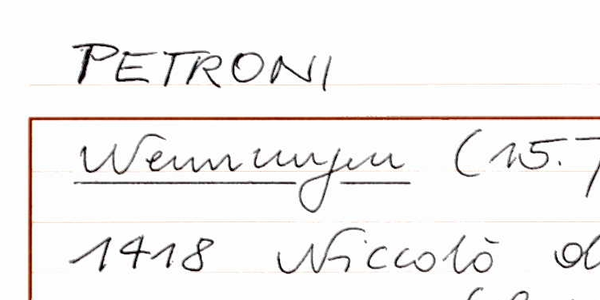 PETRONI
Nennungen (15.
1418 Niccolò